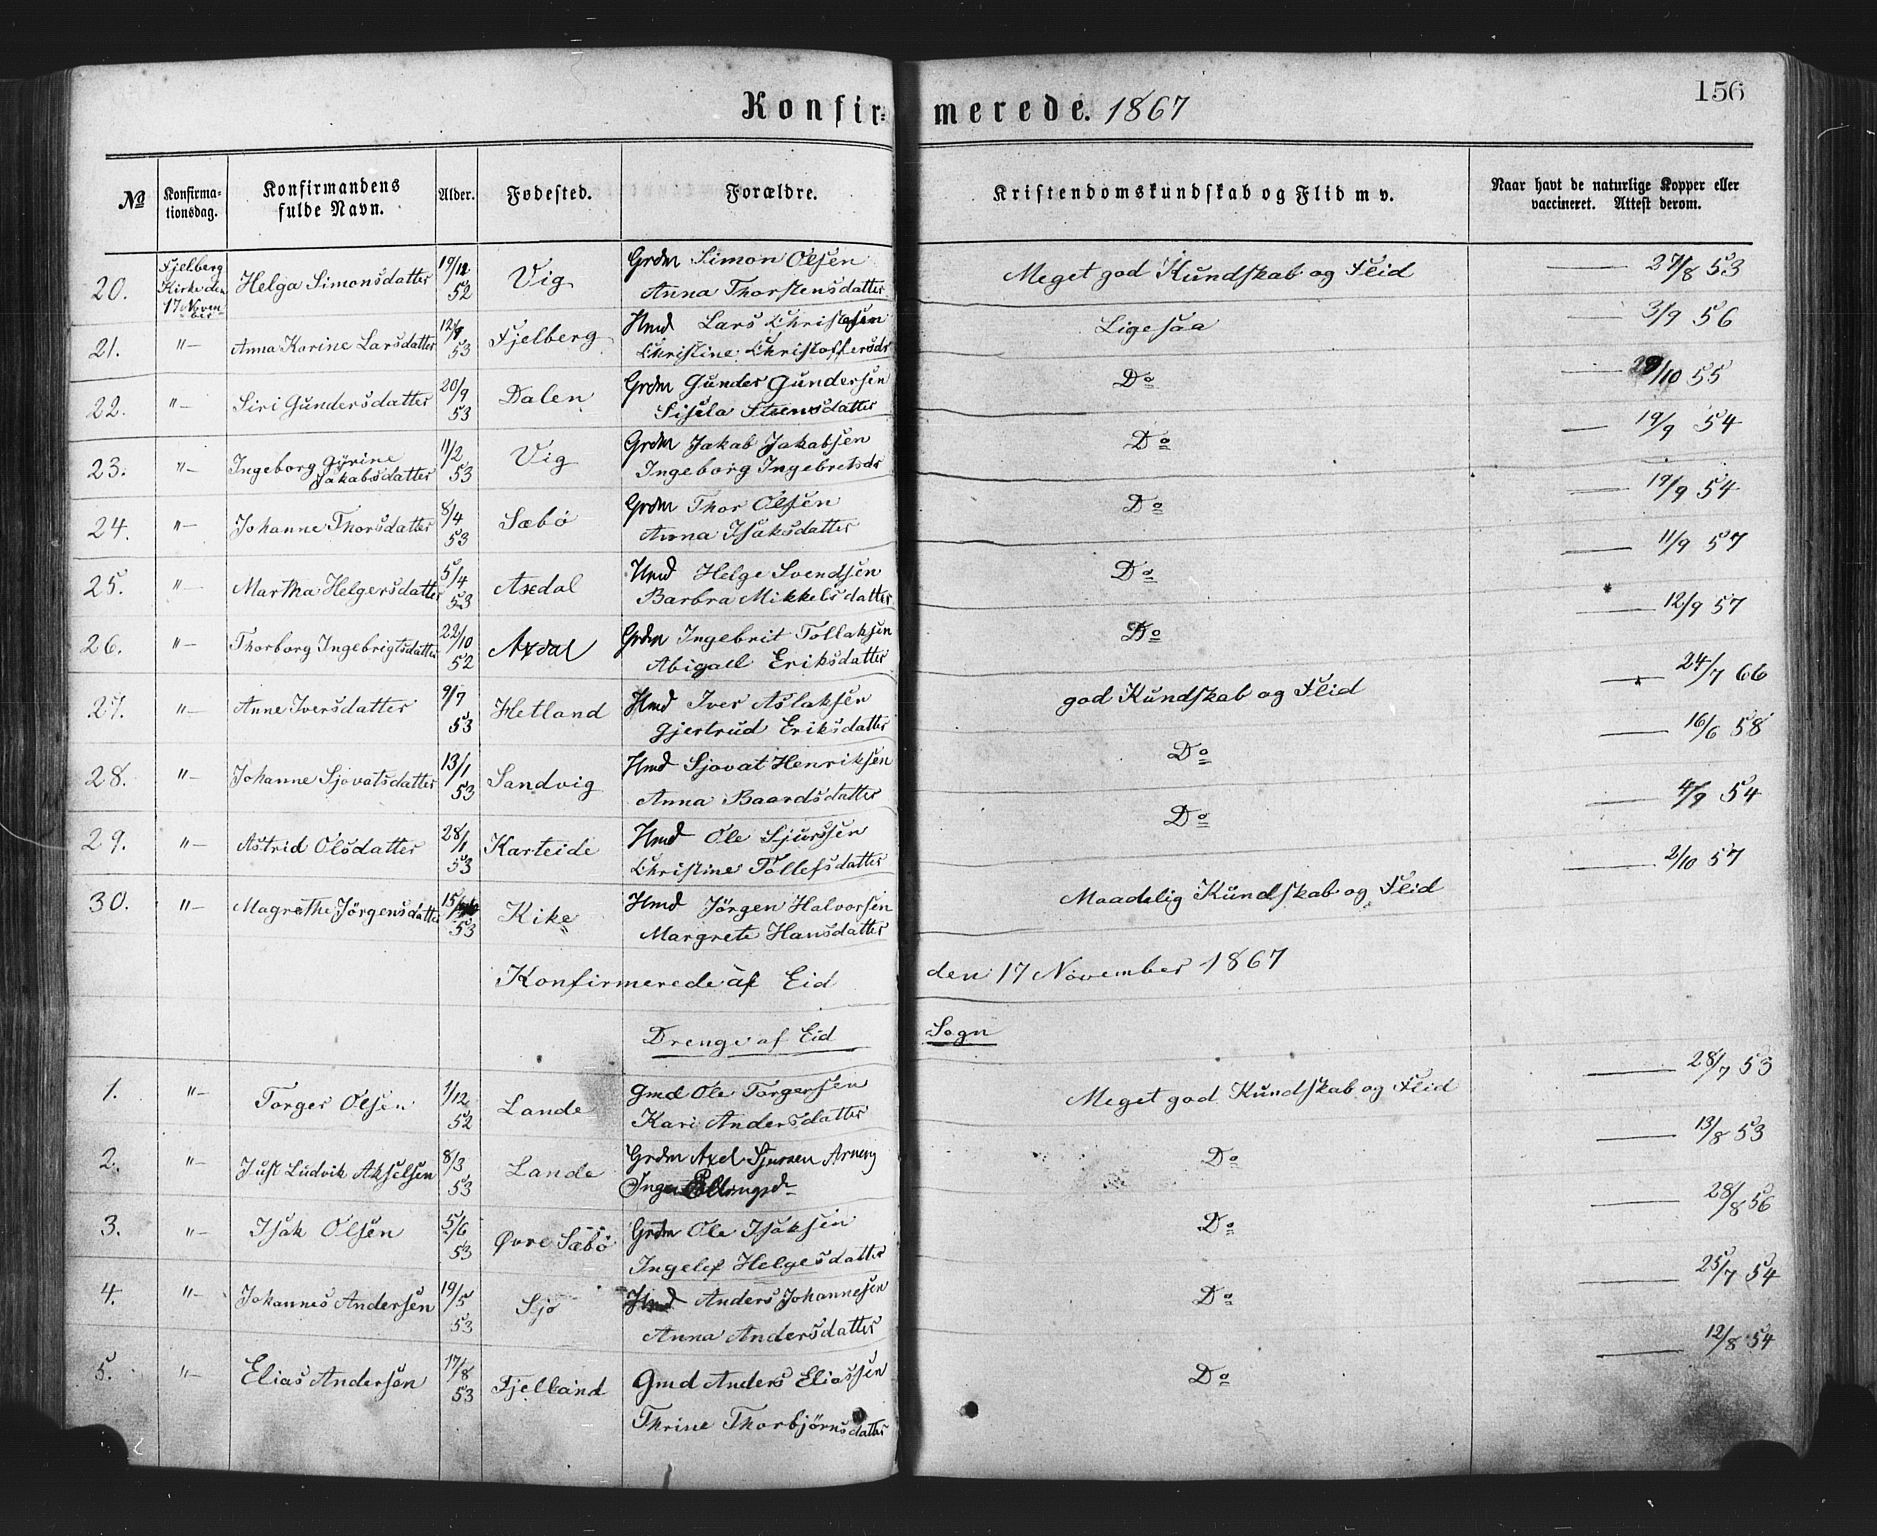 156
Konfir- merede. 1867
No Konfirma- Konfirmandens Alder. Fødested. Forældre. Kristendomskundskab og Flid m v. Naar havt de naturlige Kopper eller
tionsdag. fulde Navn. vaccineret. Attest derom.
20. Fjelberg Kirke den 17 Novem-ber Helga Simonsdatter 19/12 52 Vig Grdm Simon Olsen Meget god Kundskab og Flid — 27/8 53
Anna Thorstensdatter
21. "— Anna Karine Larsdatter 12/9 53 Fjelberg Hmd Lars Christensen Ligesaa — 3/9 56
Christine Christoffersdr
22. "— Siri Gundersdatter 20/9 53 Dalen Grdm Gunder Gundersen Do — /10 55
Sisela Steensdatter
23. "— Ingeborg Gyrine Jakabsdatter 11/2 53 Vig Grdm Jakab Jakabsen Do — 19/9 54
Ingeborg Ingebretsdr
24. "— Johanne Thorsdatter 8/4 53 Sæbö Grdm Thor Olsen Do — 19/9 54
Anna Isaksdatter
25. "— Martha Helgersdatter 5/4 53 Axdal Hmd Helge Svendsen Do — 11/9 57
Barbra Mikkelsdatter
26. "— Thorborg Ingebrigtsdatter 22/10 52 Axdal Grdm Ingebrit Tollaksen Do — 12/9 57
Abigael Eriksdatter
27. "— Anne Iversdatter 9/7 53 Hetland Hmd Iver Aslaksen god Kundskab og Flid — 24/7 66
Gjertrud Eriksdatter
28. "— Johanne Sjovatsdatter 13/1 53 Sandvig Hmd Sjovat Henriksen Do — 16/6 58
Anna Baardsdatter
29. "— Astrid Olsdatter 28/1 53 Karteide Hmd Ole Sjurssen Do — 4/9 54
Christine Tollefsdatter
30. "— Magrethe Jörgensdatter 15/ 53 Kike Hmd Jörgen Halvorsen Maadelig Kundskab og Flid — 2/10 57
Margrete Hansdatter
Konfirmerede af Eid den 17 November 1867
Drenge af Eid Sogn
1. "— Torger Olsen 1/12 52 Lande Gmd Ole Torgersen Meget god Kundskab og Flid — 28/7 53
Kari Andersdatter
2. "— Just Ludvik Akselsen 8/3 53 Lande Grdm Axel Sjursen Do — 13/8 53
Inger Ellingsdr
3. "— Isak Olsen 5/6 53 Øvre Sæbö Grdm Ole Isaksen Do — 28/8 56
Ingelef Helgesdatter
4. "— Johannes Andersen 19/5 53 Sjo Hmd Anders Johannesen Do — 25/7 54
Anna Andersdatter
5. "— Elias Andersen 17/8 53 Fjelland Gmd Anders Eliassen Do — 12/8 54
Thrine Thorbjörnsdatter